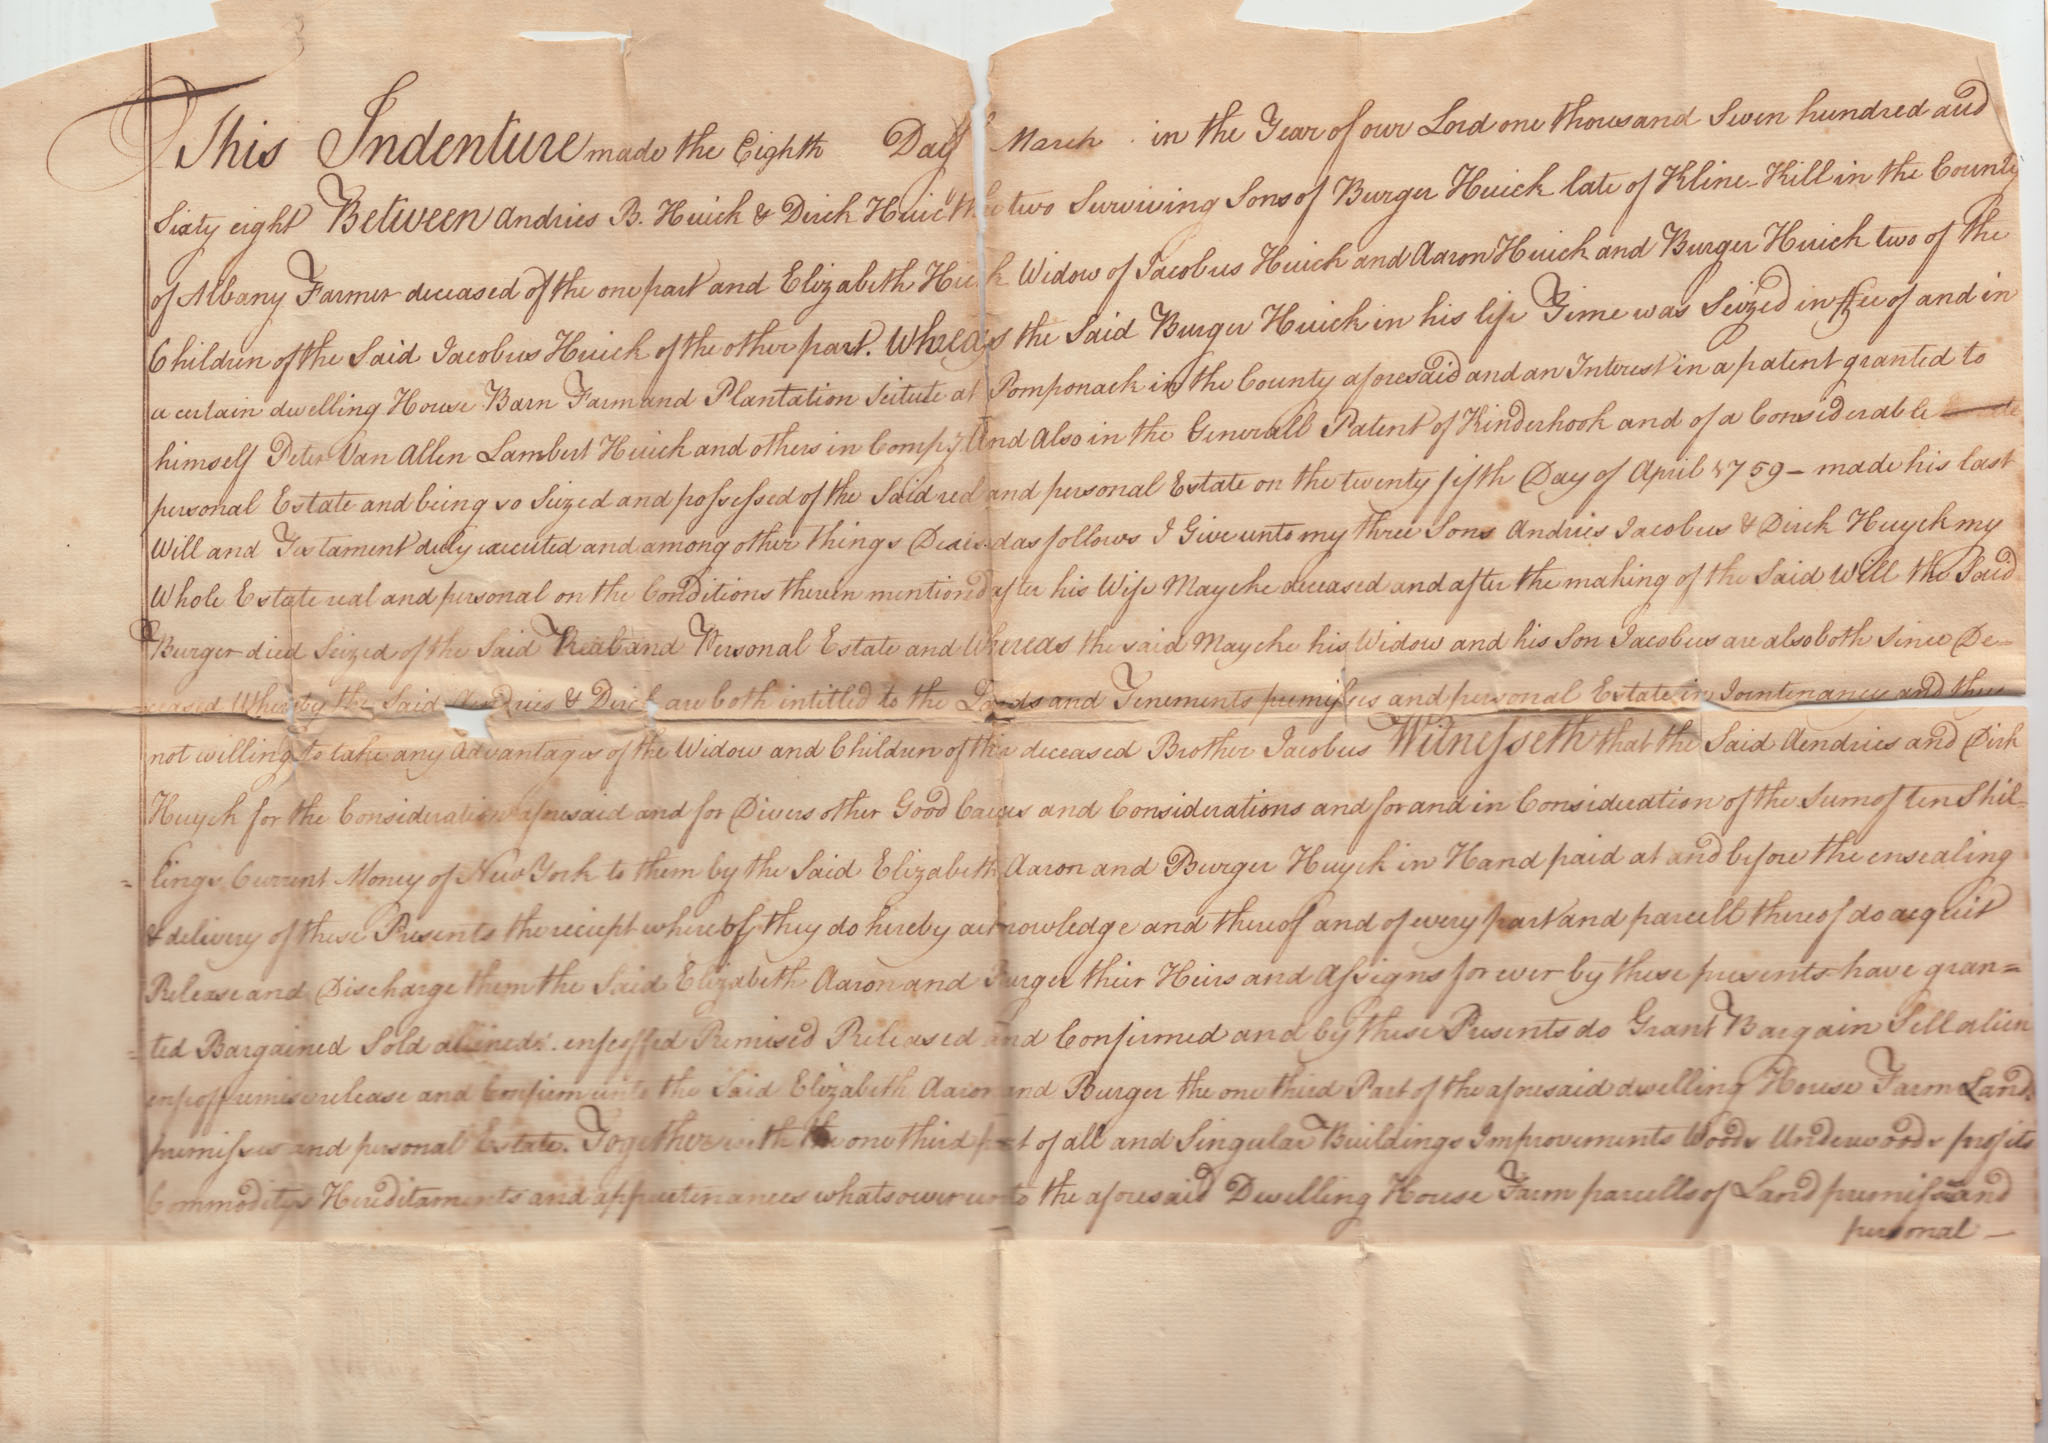 This Indenture made the Eighth Day of March in the Year of our Lord one thousand Seven hundred and
Sixty eight Between Andries B. Huick & Dirck Huick the two Surviving Sons of Burger Huick late of Kline-Kill in the County
of Albany Farmer deceased of the one part and Elizabeth Huick Widow of Jacobus Huick and Aaron Huick and Burger Huick two of the
Children of the Said Jacobus Huick of the other part. Whreas the Said Burger Huick in his life Time was Seized in ffee of and in
a certain dwelling House Barn Farm and Plantation Scitute at Pomponack in the County aforesaid and an Interest in a patent granted to
himself Peter Van Allen Lambert Huick and others in Compy And Also in the Generall Patent of Kinderhook and of a Considerable
personal Estate and being so Seized and possessed of the Said real and personal Estate on the twenty fifth Day of April 1759 - made his last
Will and Testament duly executed and among other things Devised as follows I Give unto my three Sons Andries Jacobus & Dirck Huyck my
Whole Estate real and personal on the Conditions therein mentioned after his Wife Mayche deceased and after the making of the Said Will the Said
Burger died Seized of the Said Real and Personal Estate and Whereas the said Mayche his Widow and his Son Jacobus are also both Since De-
ceased Whereby the Said Andries & Dirck are both intitled to the Lands and Tenements premisses and personal Estate in Jointenancy and they
not willing to take any Advantages of the Widow and Children of their deceased Brother Jacobus Witnesseth that the Said Aendries and Dirk
Huyck for the Consideration aforesaid and for Divers other Good Causes and Considerations and for and in Consideration of the Sum of ten Shil-
lings Current Money of New York to them by the Said Elizabeth Aaron and Burger Huyck in Hand paid at and before the ensealing
& delivery of these Presents the reciept whereof they do hereby acknowledge and thereof and of every part and parcell thereof do acquit
Release and Discharge them the Said Elizabeth Aaron and Burger thier Heirs and Assigns for ever by these presents have gran=
ted Bargained Sold aliened enfeoffed Remised Released and Confirmed and by these Presents do Grant Bargain Sell alien
enfeoff remise release and Confirm unto the Said Elizabeth Aaron and Burger the one third Part of the aforesaid dwelling House Farm Lands
premisses and personal Estate. Together with the one third part of all and Singular Buildings Improvements Woods Underwoods profits
Commoditys Hereditaments and appurtenances whatsoever unto the aforesaid Dwelling House Farm parcells of Land premisses and
personal -